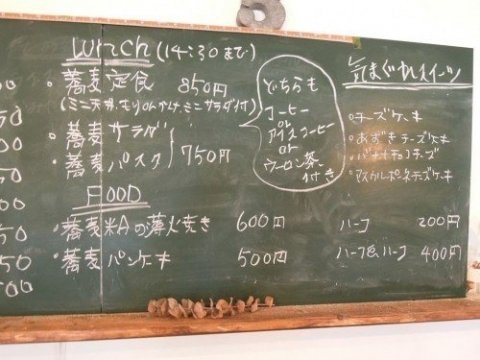 00
50
50
50
50
00
Lunch (14:30まで)
・蕎麦定食 850円
(ミニ天丼 ミニサラダ付)
・蕎麦サラダ
・蕎麦パスタ 750円
どちらも
コーヒー
or
アイスコーヒー
or
ウーロン茶
付き
FOOD
・蕎麦粉の薄焼き 600円
・蕎麦パンケーキ 500円
気まぐれスイーツ
・チーズケーキ
・あずきチーズケーキ
・バナナチョコチーズ
・マスカルポーネチーズケーキ
ハーフ 200円
ハーフ&ハーフ 400円